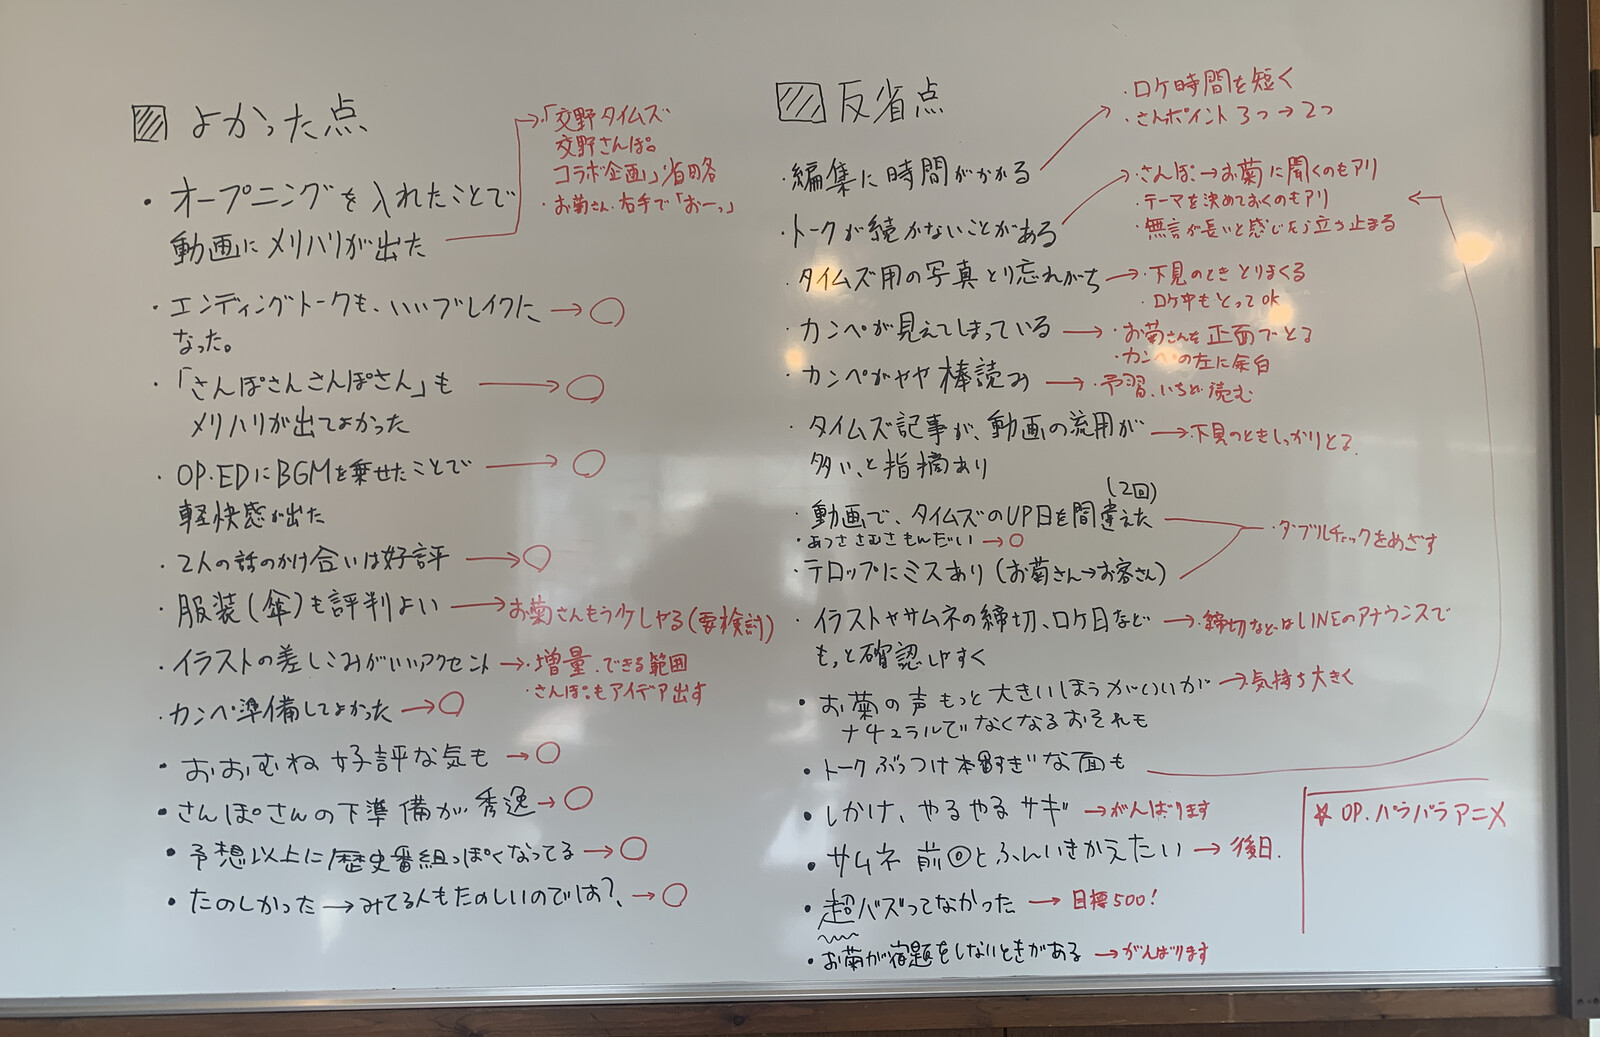 よかった点
・オープニングを入れたことで
動画にメリハリが出た
→・「交野タイムズ
交野さんぽ。
コラボ企画」省略
・お菊さん.右手で「おーっ」
・エンディングトークも、いいブレイクに → ○
なった。
・「さんぽさんさんぽさん」も → ○
メリハリが出てよかった
・OP.EDにBGMを乗せたことで → ○
軽快感が出た
・2人の話のかけ合いは好評 → ○
・服装(傘)も評判よい → お菊さんもう少しやる(要検討)
・イラストの差しこみがいいアクセント → ・増量.できる範囲
・さんぽ。もアイデア出す
・カンペ準備してよかった → ○
・おおむね好評な気も → ○
・さんぽさんの下準備が秀逸 → ○
・予想以上に歴史番組っぽくなってる → ○
・たのしかった → みてる人もたのしいのでは?、 → ○
反省点
・編集に時間がかかる
・ロケ時間を短く
・さんポイント 3つ→2つ
・トークが続かないことがある
・さんぽ。→お菊に聞くのもアリ
・テーマを決めておくのもアリ
・無言が長いと感じたら立ち止まる
・タイムズ用の写真とり忘れがち → ・下見のときとりまくる
・ロケ中もとってOK
・カンペが見えてしまっている → ・お菊さんを正面でとる
・カンペの左に余白
・カンペがやや棒読み → ・予習.いちど読む
・タイムズ記事が、動画の流用が → ・下見のときしっかりとる.
多い、と指摘あり
(2回)
・動画で、タイムズのUP日を間違えた
・あつささむさもんだい → ○
・テロップにミスあり(お菊さん→お客さん)
・ダブルチェックをめざす
・イラストやサムネの締切、ロケ日など → ・締切などはLINEのアナウンスで
もっと確認しやすく
・お菊の声もっと大きいほうがいいが → ・気持ち大きく
ナチュラルでなくなるおそれも
・トークぶっつけ本番すぎな面も
・しかけ、やるやるサギ → がんばります
・サムネ 前◎とふんいきかえたい → 後日.
・超バズってなかった → 目標500!
・お菊が宿題をしないときがある → がんばります
☆OP.パラパラアニメ